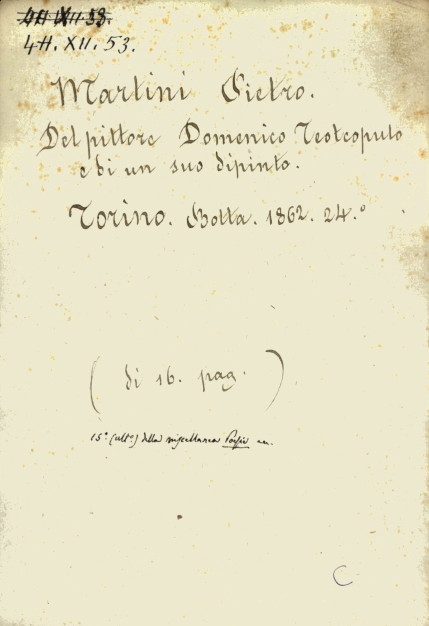 4H. XII. 53.
4H. XII. 53.
Martini Pietro.
Del pittore Domenico Teotcopulo
e di un suo dipinto.
Torino. Botta. 1862. 24.°
( di 16. pag. )
15° (ult°) della miscellanea
C